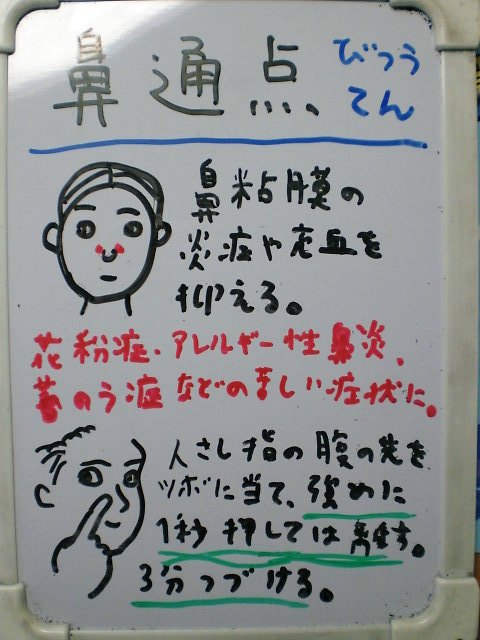 鼻通点
びつう
てん
鼻粘膜の
炎症や充血を
抑える。
花粉症・アレルギー性鼻炎、
蓄のう症などの苦しい症状に。
人さし指の腹の先を
ツボに当て、強めに
1秒押しては離す。
3分つづける。